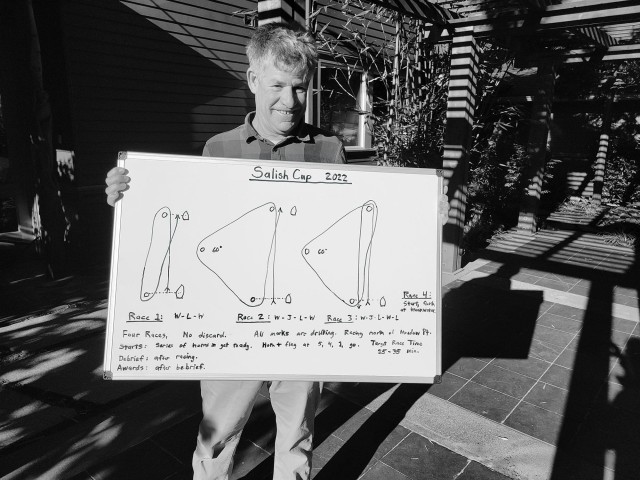 Salish Cup 2022
60°
60°
Race 1: W-L-W
Race 2: W-J-L-W
Race 3: W-J-L-W-L
Race 4:
Start, finish
Four Races, No discard. All marks are drifting. Racing north of Meadow Pt.
Starts: Series of horns to get ready. Horn + flag at 5, 4, 1, go. Target Race Time
25-35 min.
Debrief: after racing.
Awards: after debrief.